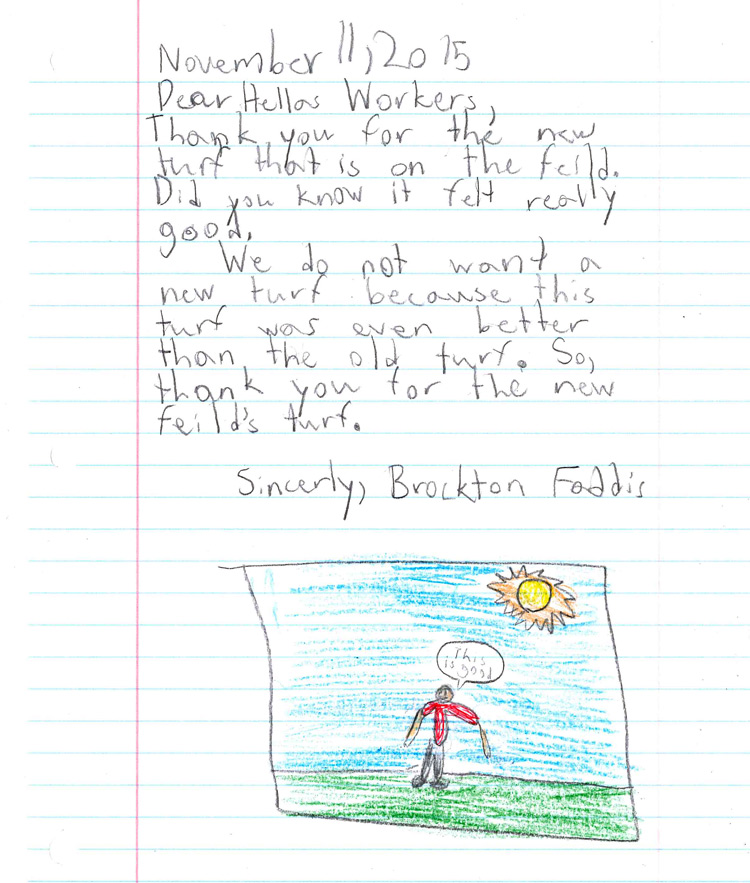 November 11, 2015
Dear Hellas Workers,
Thank you for the new
turf that is on the feild.
Did you know it felt really
good.
We do not want a
new turf because this
turf was even better
than the old turf. So,
thank you for the new
feild's turf.
Sincerly, Brockton Faddis
This
is good